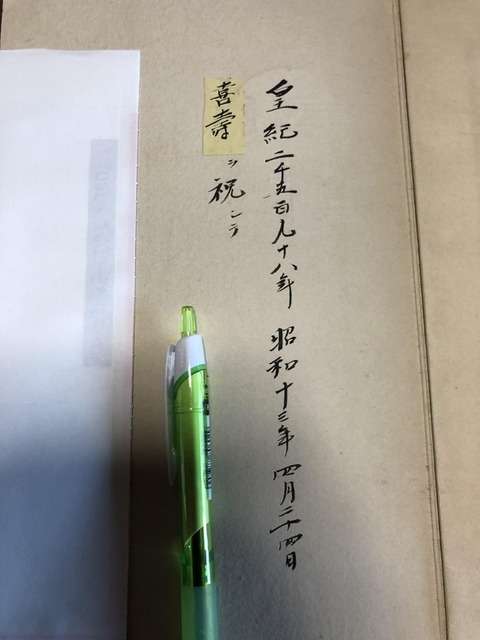 皇紀二千五百九十八年 昭和十三年 四月二十四日
喜壽ヲ祝シテ